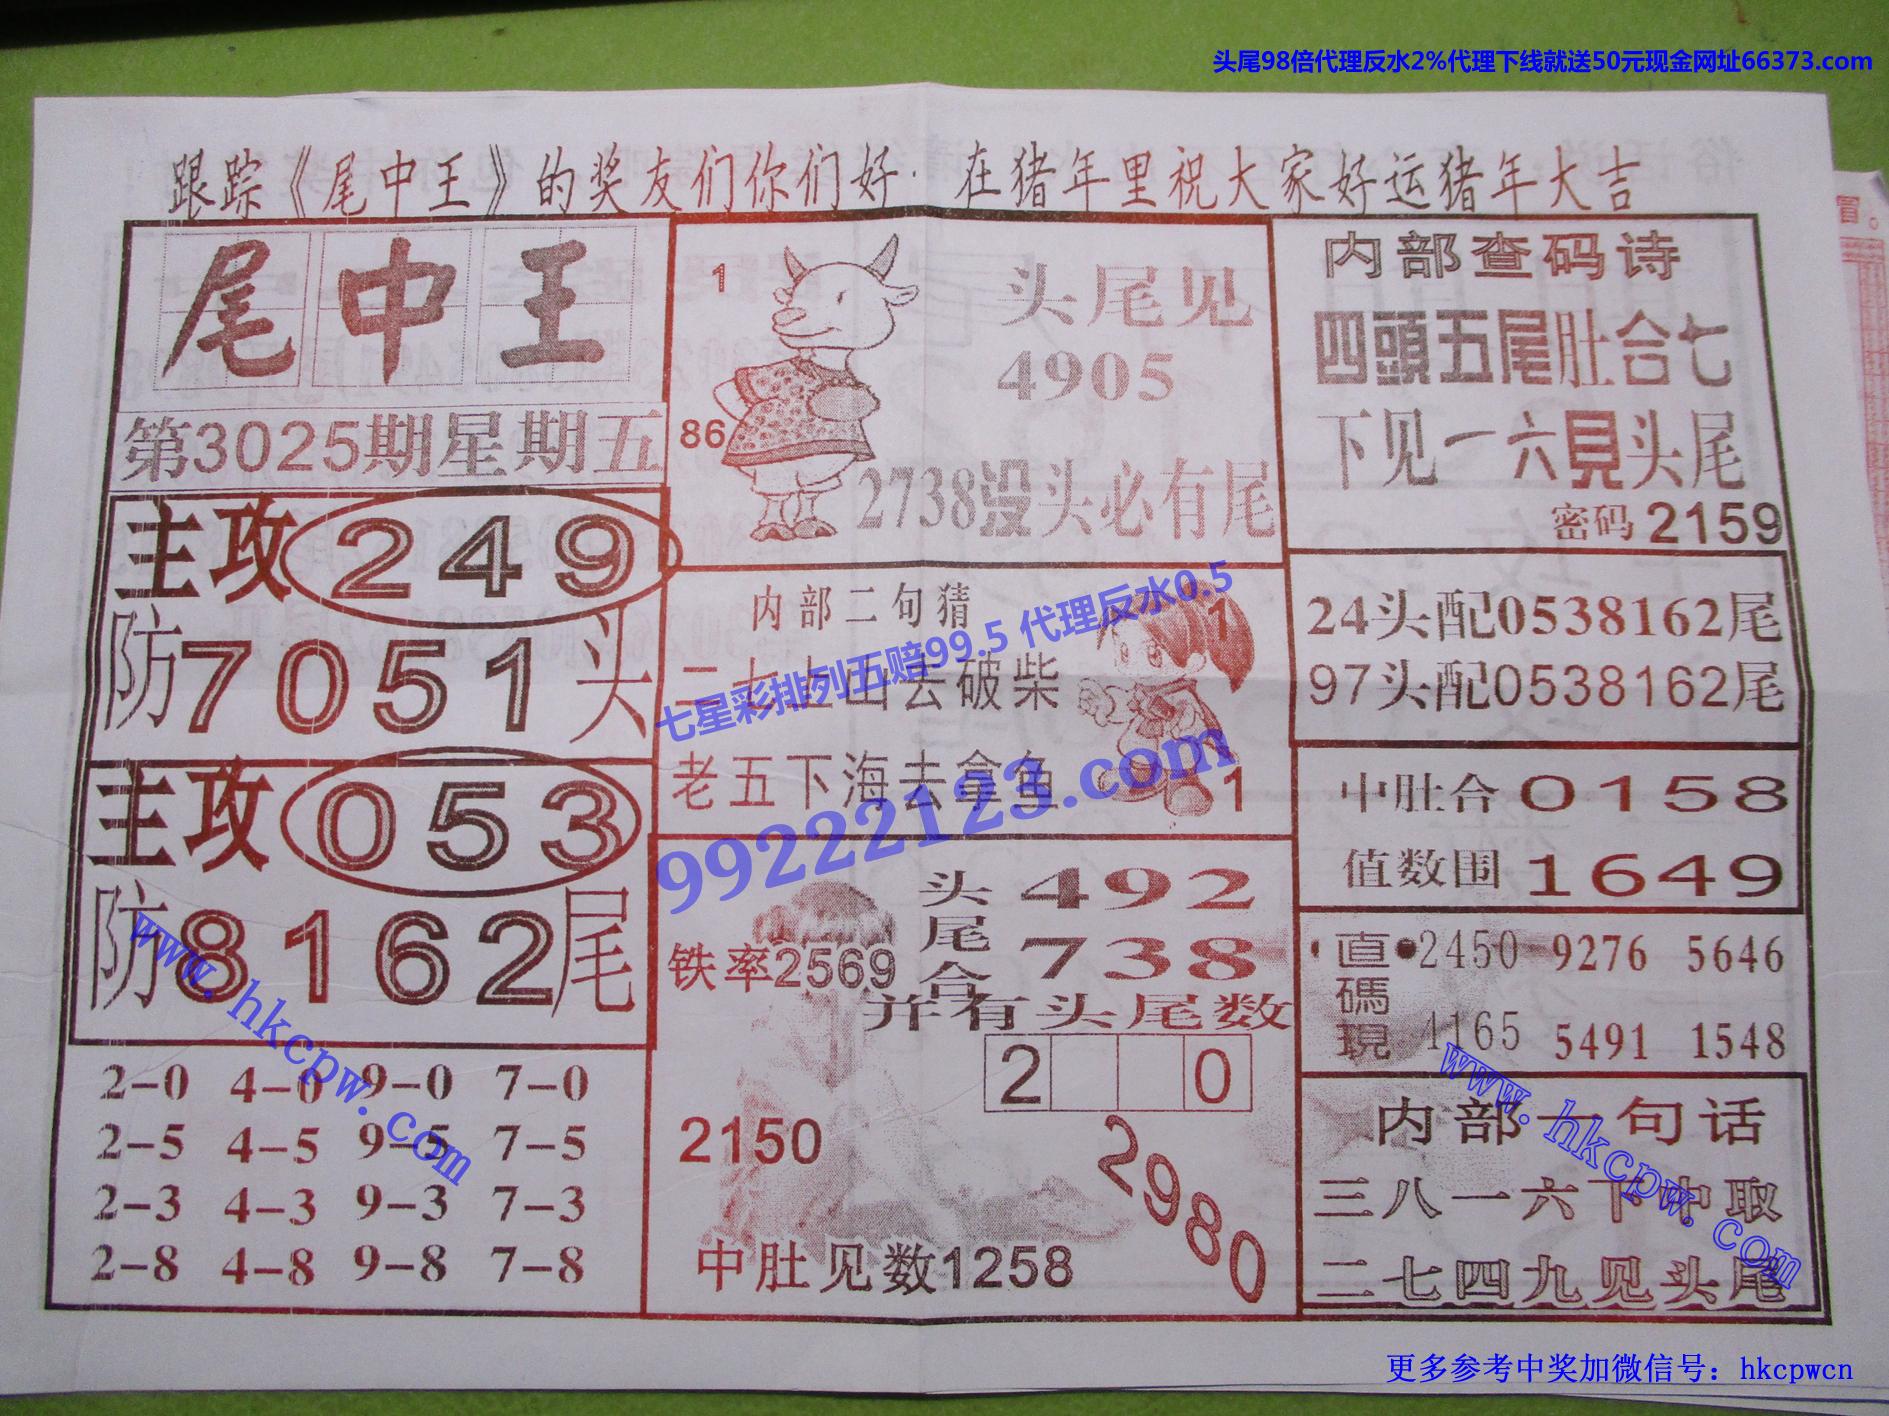 头尾98倍代理反水2%代理下线就送50元现金网址66373.com
跟踪《尾中王》的奖友们你们好·在猪年里祝大家好运猪年大吉
尾中王
第3025期星期五
主攻249
防7051头
主攻053
防8162尾
2-0 4-0 9-0 7-0
2-5 4-5 9-5 7-5
2-3 4-3 9-3 7-3
2-8 4-8 9-8 7-8
1
86
头尾见
4905
2738没头必有尾
内部二句猜
二七上山去破柴
老五下海去拿鱼
1
1
七星彩排列五赔99.5 代理反水0.5
99222123.com
头尾合
492
738
铁率2569
并有头尾数
2 0
2150
2980
中肚见数1258
内部查码诗
四頭五尾肚合七
下见一六見头尾
密码2159
24头配0538162尾
97头配0538162尾
中肚合0158
值数围1649
直碼現
2450 9276 5646
4165 5491 1548
内部一句话
三八一六下中取
二七四九见头尾
www.hkcpw.com
www.hkcpw.com
更多参考中奖加微信号：hkcpwcn